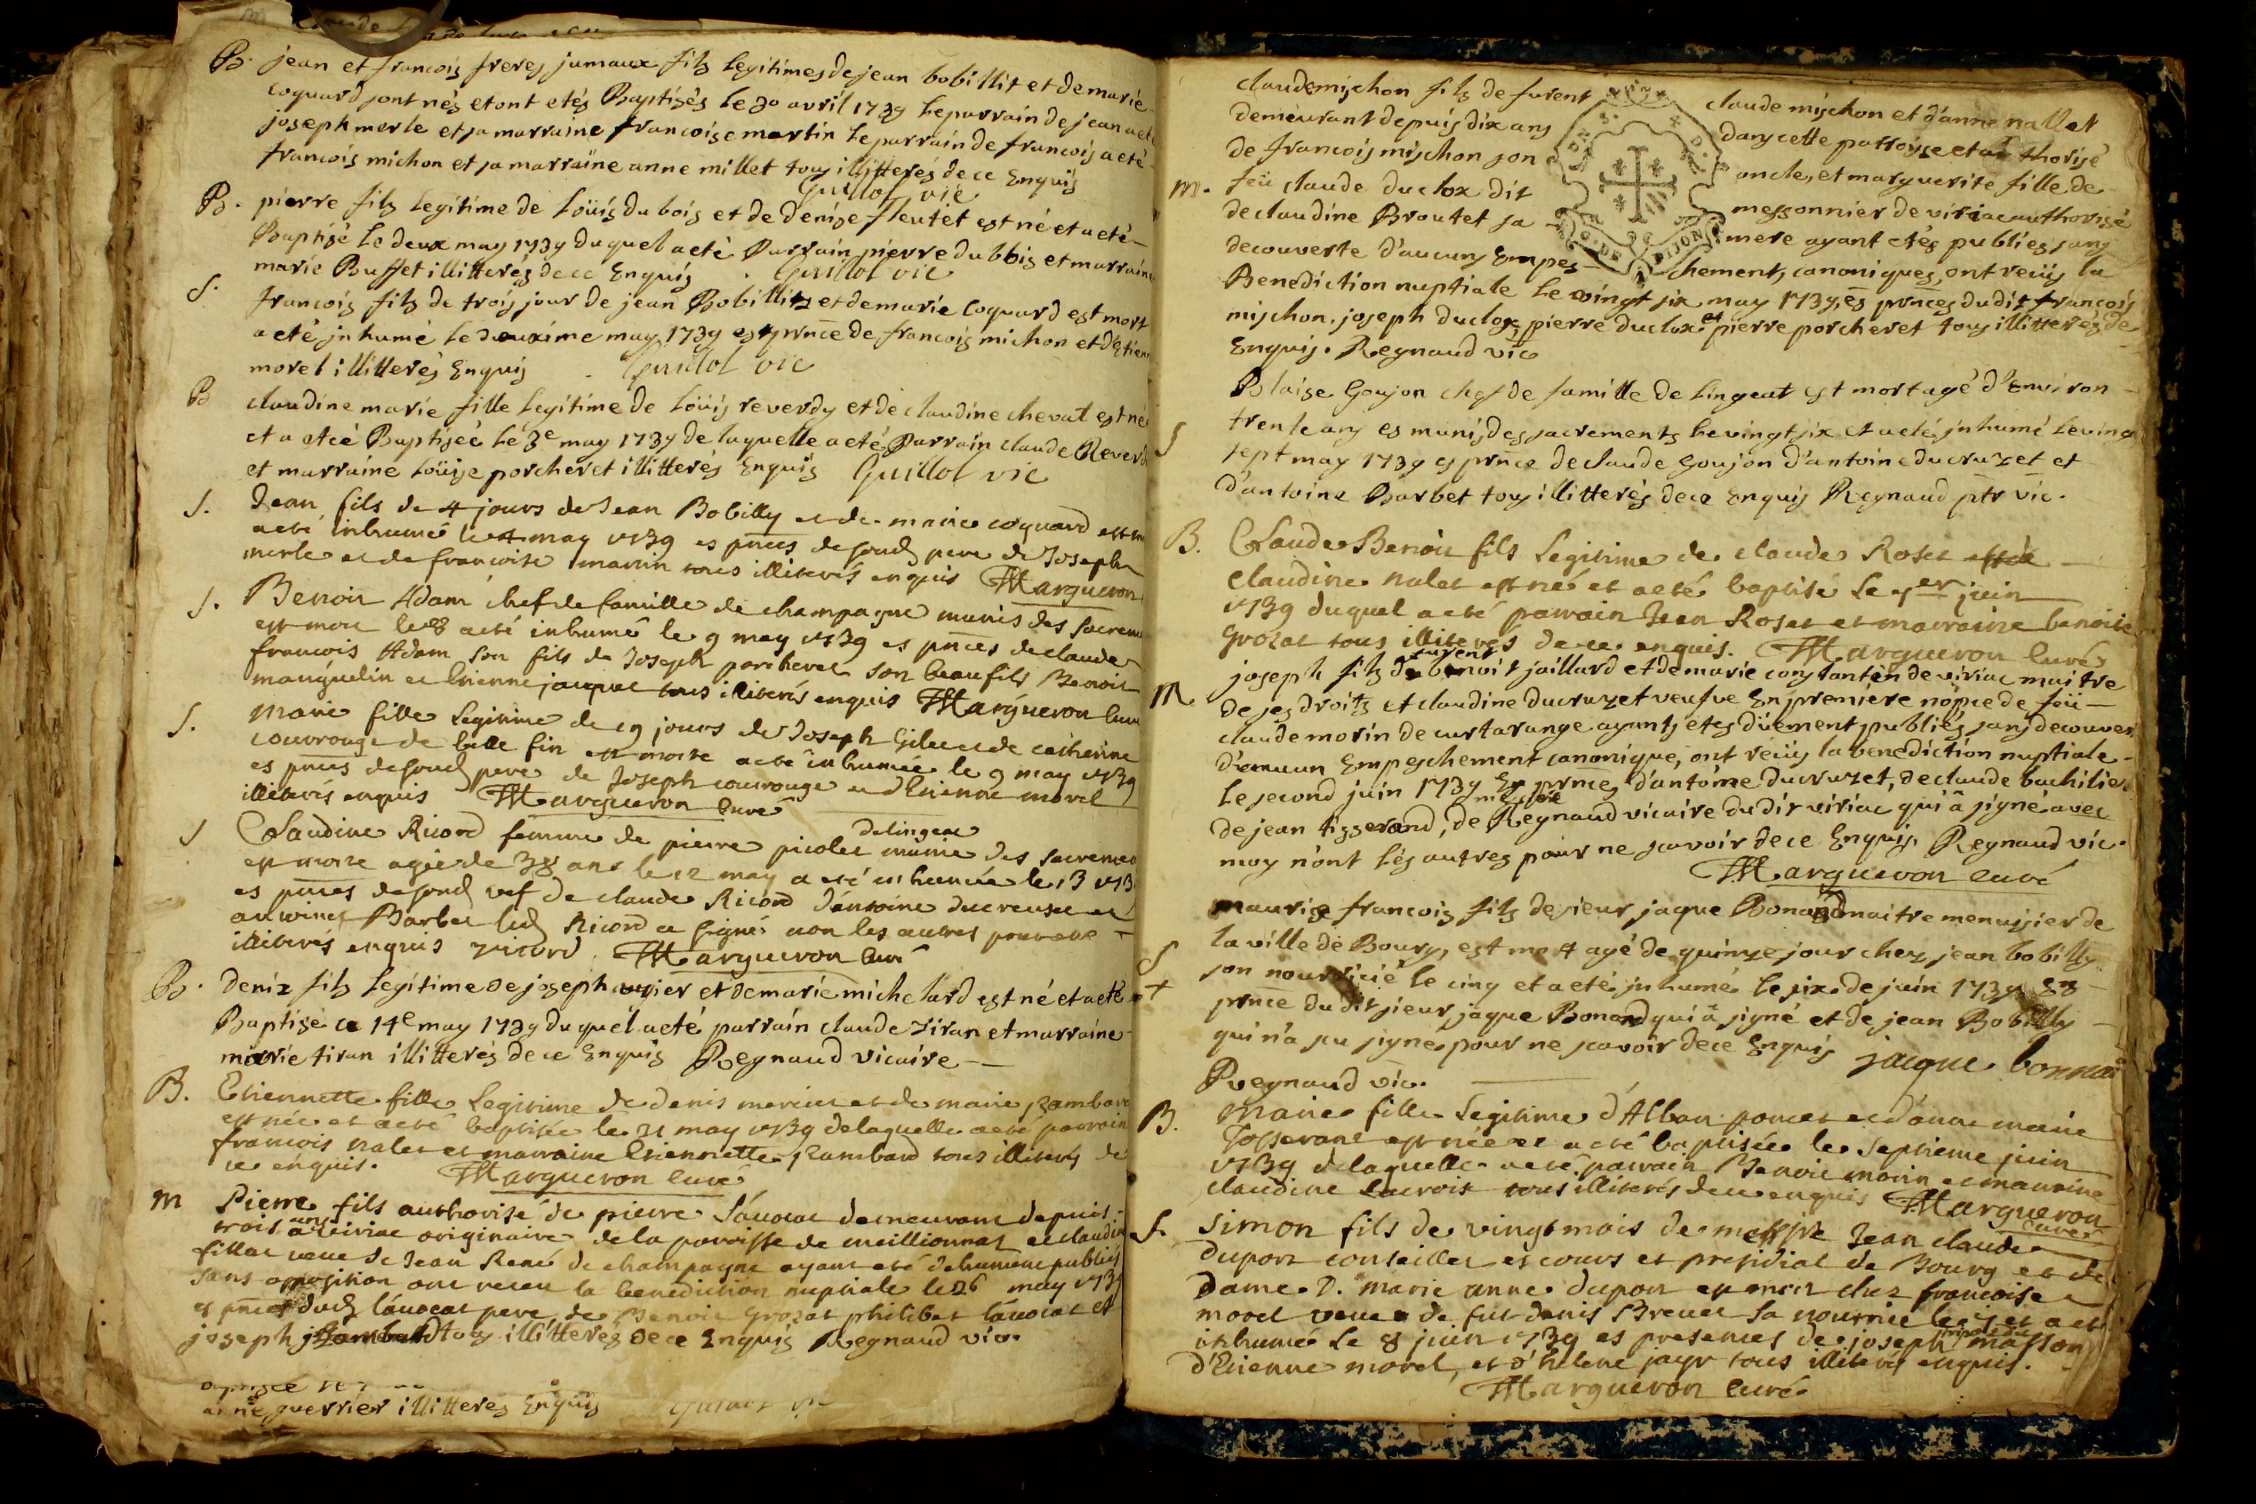 B. jean et francois freres jumaux fils legitimes de jean bobillit et de marie
coquard sont nés et ont etés Baptisés le 30 avril 1739 le parrain de jean a eté
joseph merle et sa marraine francoise martin le parrain de francois a eté
francois michon et sa marraine anne millet tous illitterés de ce Enquis
Guillot vic
B. pierre fils legitime de Loüis du bois et de denise fleutet est né et a eté
Baptisé le deux may 1739 duquel a eté Parrain pierre du bois et marraine
marie Buffet illitterés de ce Enquis . Guillot vic
S. francois fils de trois jour de jean Bobillit et de marie Coquard est mort
a eté inhumé le deuxime may 1739 es prnce de francois michon et d'Etien
morel illitterés Enquis . Guillot vic
B claudine marie fille legitime de Loüis reverdy et de claudine chevat est né
et a eteé Baptiseé le 3e may 1739 de laquelle a eté Parrain claude Reverd
et marraine Loüise porcheret illitterés Enquis Guillot vic
S. Jean fils de 4 jours de Jean Bobilly et de marie coquard est
a eté inhumé le 4 may 1739 es pnces de soud pere de Joseph
merle et de francoise martin tous illiterés enquis Margueron
S. Benoit Adam chef de famille de champagne munis des sacrem
est mort le 8 a eté inhumé le 9 may 1739 es pnces de claude
francois Adam son fils de Joseph porcheret son beau fils Benoit
manguelin et Etienne jacquet tous illiterés enquis Margueron curé
S. Marie fille legitime de 19 jours de Joseph et de catherine
courouge de belle fin est morte a eté inhumée le 9 may 1739
es pnces de soud pere de Joseph courouge et d'Etienne morel
illiterés enquis Margueron curé
S Claudine Ricord femme de pierre picolet de lingeat munie des sacremen
est morte agée de 38 ans le 12 may a eté inhumée le 13 173
es pnces de soud vef de claude Ricord d'antoine ducreuset et
antoine Barbet led Ricord a signé non les autres pour etre
illiterés enquis ricord Margueron curé
B. Denis fils legitime de joseph et de marie michelard est né et a eté
Baptisé ce 14e may 1739 duquel a eté parrain claude tiran et marraine
marie tiran illitterés de ce Enquis Regnaud vicaire
B. Etiennette fille legitime de denis mercier et de marie rambard
est née et a eté baptisée le 21 may 1739 de laquelle a eté parrain
francois nalet et marraine Etiennette Rambard tous illiterés de
ce enquis. Margueron curé
M Pierre fils authorisé de pierre Lavocat demeurant depuis
trois ans a viriac originaire de la paroisse de meillionnas et claudine
fillat veuve de Jean René de champagne ayant eté dehument publiés
sans opposition ont receu la benediction nuptiale le 26 may 1739
es pnces dud lávocat pere de Benoit Grozat philibert lavocat et
joseph tous illitterés de ce Enquis Regnaud vic.
anne guerrier illitterés Enquis Guillot vic
claude mischon fils de furent claude mischon et d'anne nallet
demeurant depuis dix ans dans cette parroisse et authorisé
de francois mischon son oncle, et marguerite fille de
m. feü claude duclox dit messonnier de viriac authorisé
de claudine Broutet sa mere ayant etés publies sans
decouverte d'aucuns Empeschements canoniques, ont recüs la
Benediction nuptiale le vingt six may 1739, es prnces dudit francois
mischon. joseph duclox, pierre duclux et pierre porcheret tous illitterés de
Enquis. Regnaud vic
S Blaise Goujon chef de famille de Lingeat est mort agé d'Environ
trente ans es munis des sacrements le vingt six et a eté inhumé le vingt
sept may 1739 es prnce de claude Goujon d'antoine ducruzet et
d'antoine Barbet tous illitterés de ce Enquis Regnaud ptr vic.
B. Claude Benoit fils legitime de claude Roset
claudine nalet est né et a eté baptisé le 1er juin
1739 duquel a eté parrain Jean Roset et marraine benoite
Grozat tous illiterés de ce enquis. Margueron curé
M joseph fils de furent benoit jaillard et de marie constantin de viriac maitre
de ses droits et claudine ducruzet veufve En premiere nopce de feü
claude morin de curtarange ayants etes düement publiés sans decouver
d'aucun Empeschement canonique, ont recüs la benediction nuptiale
le second juin 1739 Es prnces d'antoine ducruzet, de claude bachilier
de jean tisserand, de Regnaud vicaire dudit viriac qui a signé avec
moy n'ont les autres pour ne scavoir de ce Enquis. Regnaud vic.
Margueron curé
S maurise francois fils de sieur jaque Bonand maitre menuisier de
la ville de Bourg, est mort agé de quinze jour chez jean bobilly
son nourricié le cinq et a eté inhumé le six de juin 1739 Es
prnce dudit sieur jaque Bonand qui a signé et de jean Bobilly
qui n'a scu signe pour ne scavoir de ce Enquis jacque bonnai
Regnaud vic.
B. Marie fille legitime d'Alban poncet et d'anne marie
Josserant est née et a eté baptisée le septieme juin
1739 de laquelle a eté parrain Benoit morin et marraine
claudine Lacroix tous illiterés de ce enquis Margueron curé
S. Simon fils de vingt mois de messire Jean claude
duport conseiller es cours et presidial de Bourg et de
Dame D. marie anne dupon est mort chez francoise
morel veuve de fut denis Brevet sa nourrice a eté
inhumé le 8 juin 1739 es presences de joseph masson
d'Etienne morel, et d'helene jayr tous illiterés enquis.
Margueron curé